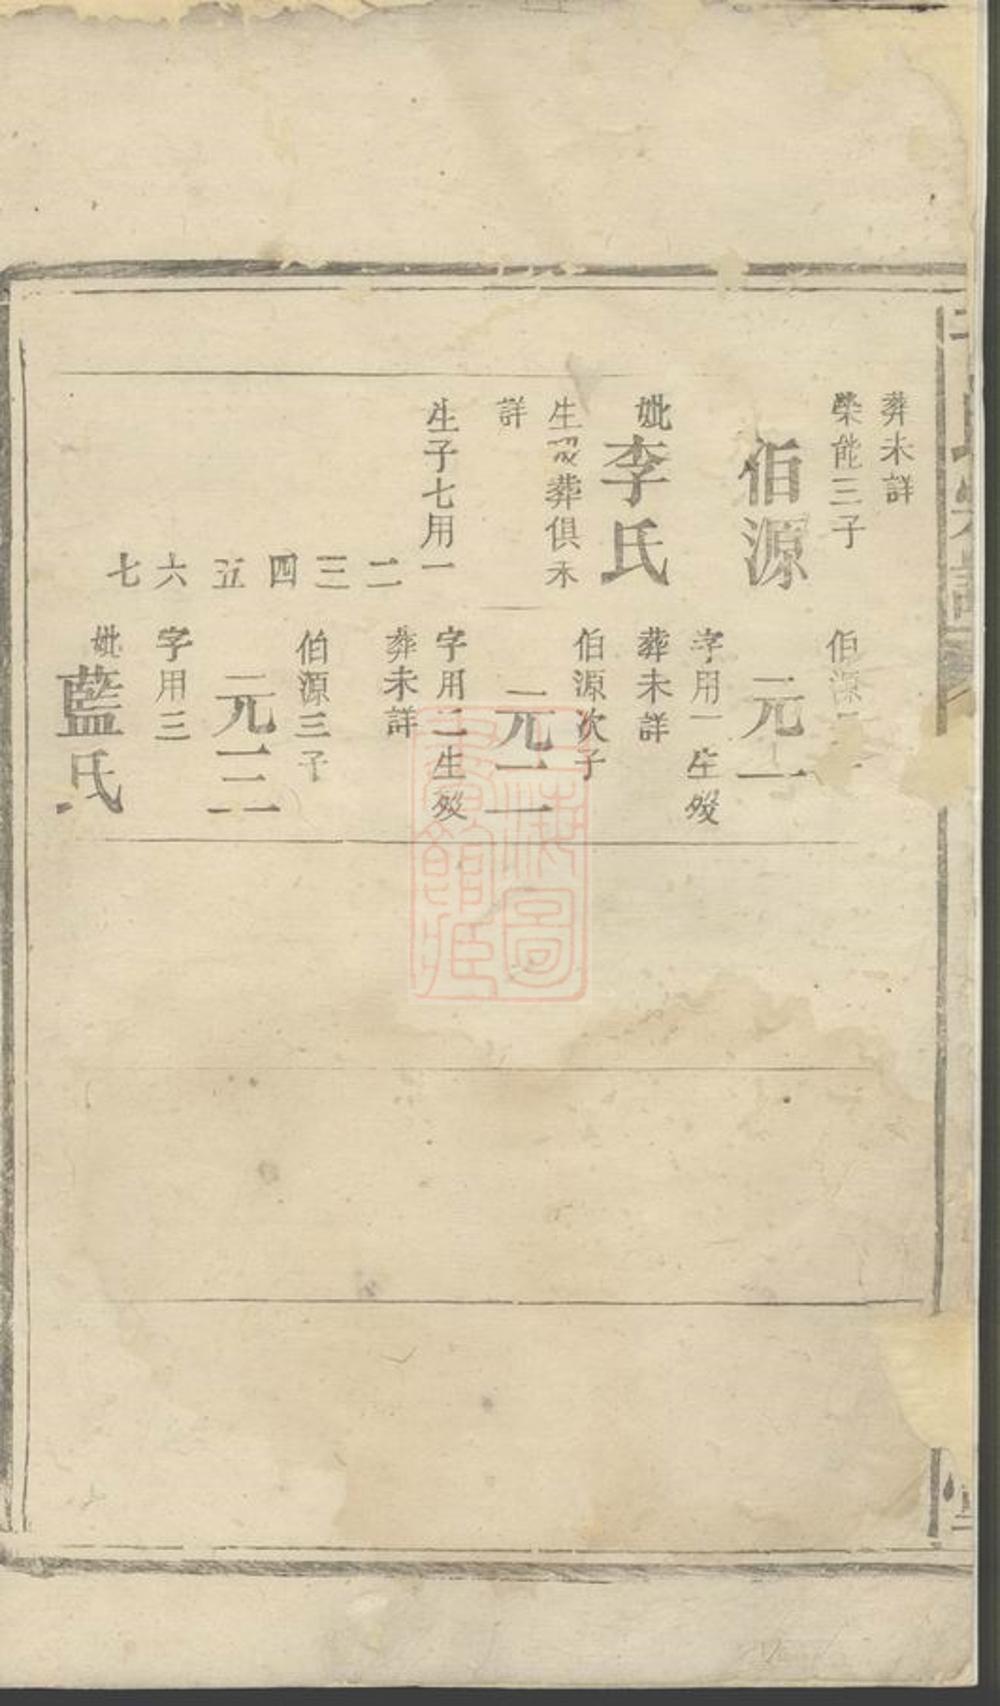 葬未詳
榮能三子
伯源
妣李氏
生叹葬俱未
詳
生子七用一
二
三
四
五
六
七
伯源
元一
字用一生殁
葬未詳
伯源次子
元二
字用二生殁
葬未詳
伯源三子
元三
字用三
妣藍氏